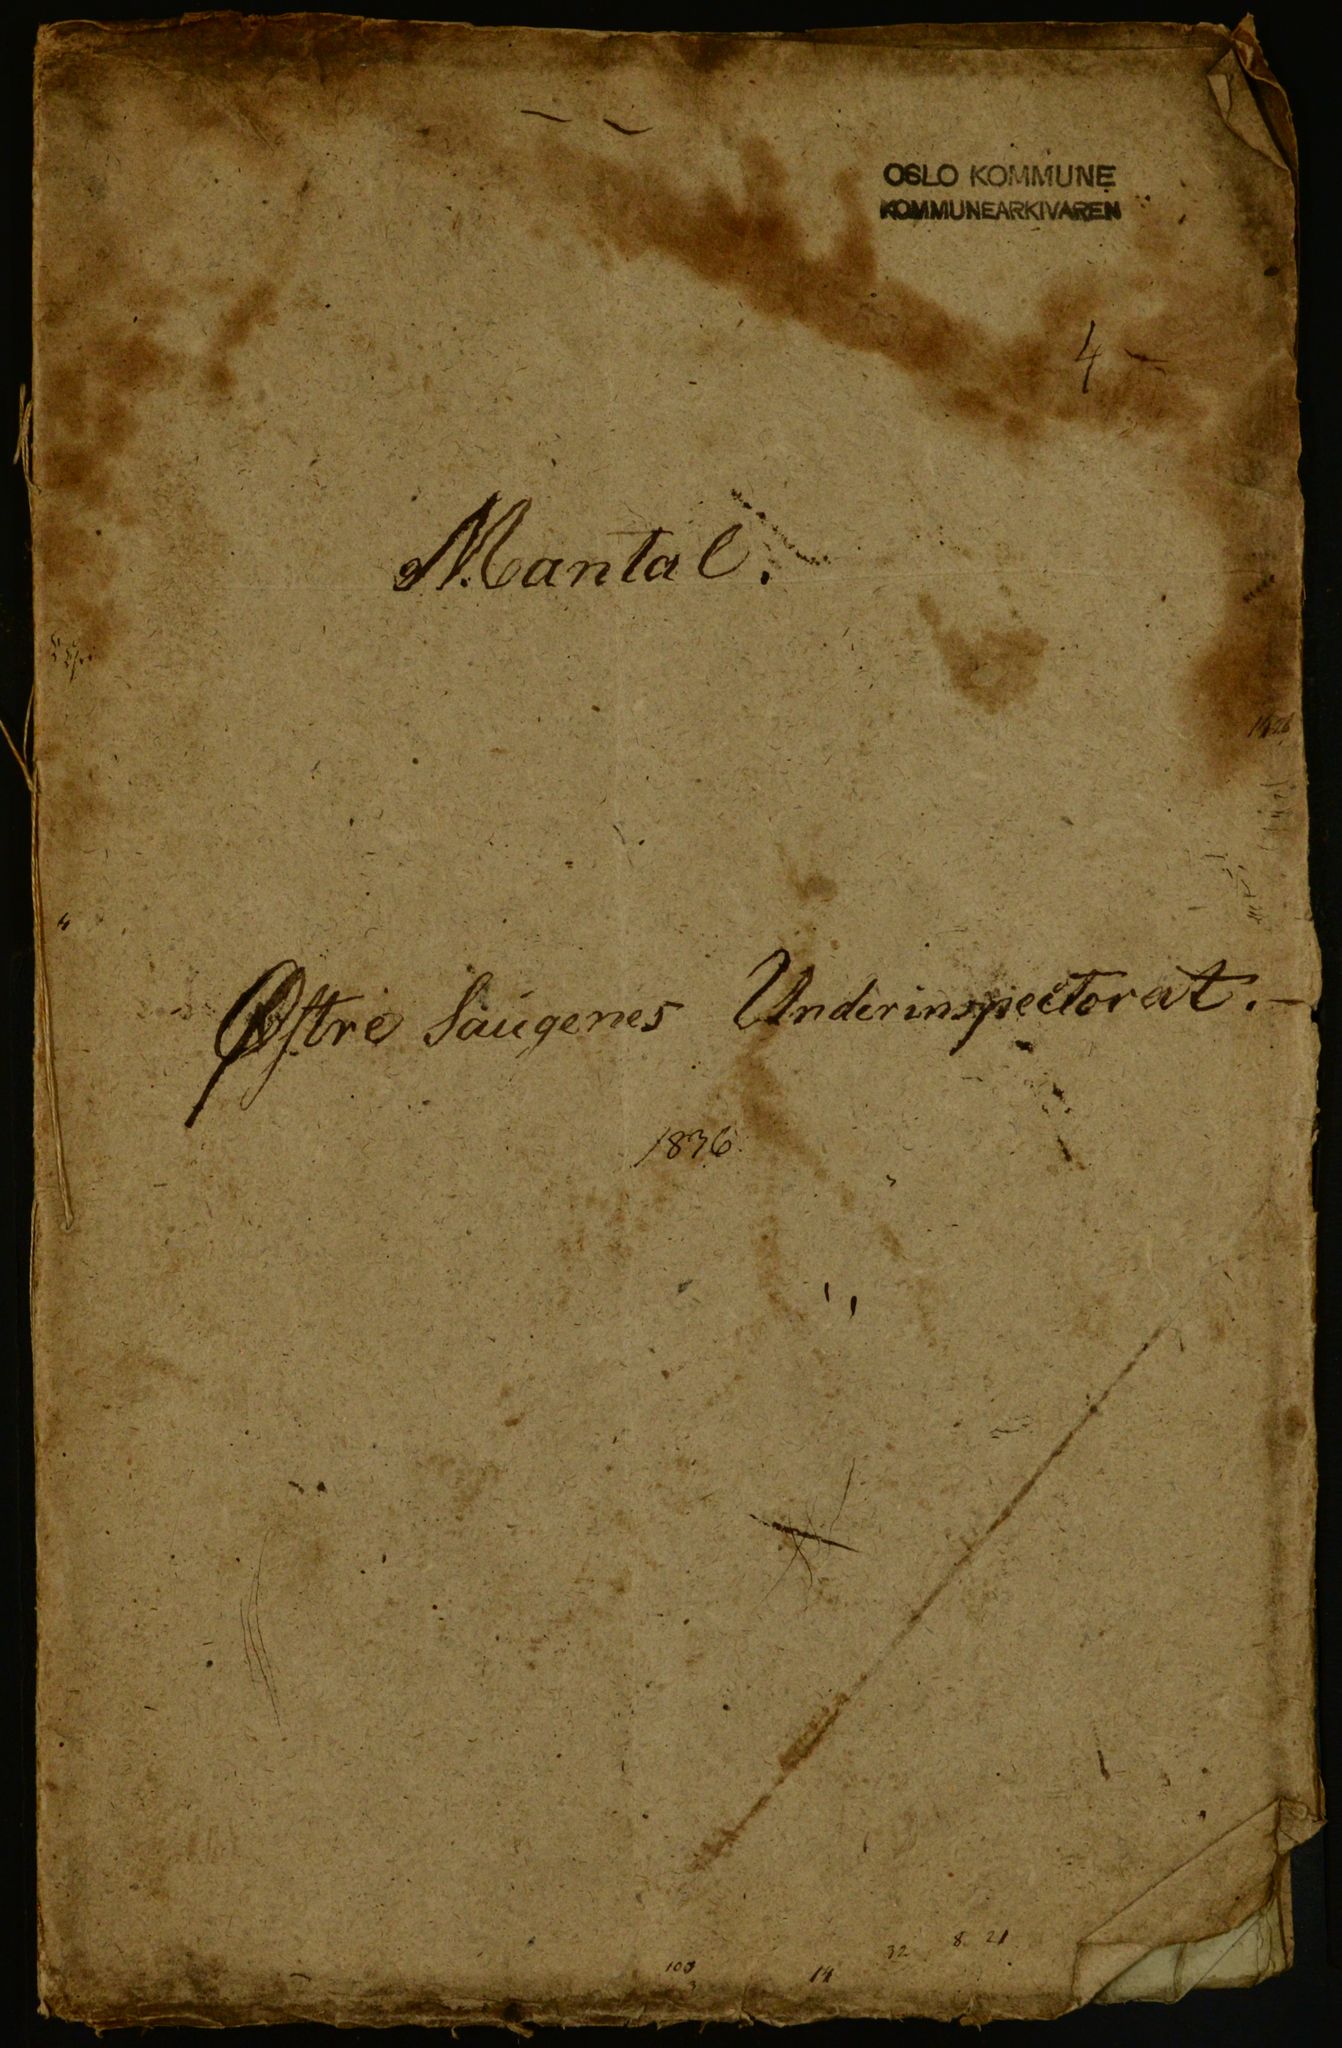 OSLO KOMMUNE
KOMMUNEARKIVAREN
4 -
Mantal.
Østre Saugenes Underinspectorat. -
1836
32 8 21
103 14
3